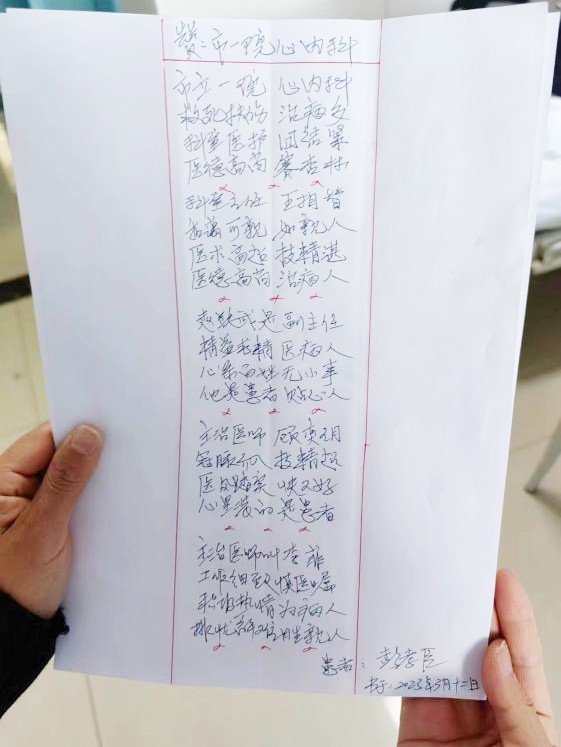 赞：市一院心内科
市立一院 心内科
救死扶伤 治病多
科室医护 团结紧
医德高尚 赛杏林
科室主任 王相智
和蔼可亲 如亲人
医术高超 技精湛
医德高尚 治病人
赵跃武是副主任
精益求精 医病人
心系百姓无小事
他是患者贴心人
主治医师 顾奕月
冠脉介入 技精招
医及踏实 快又好
心里装的 是患者
主治医师叫李菲
工作细致 慎医嘱
积极热情 为病人
排忧系位胜亲人
患者：彭孝臣
书于：2023年3月十二日